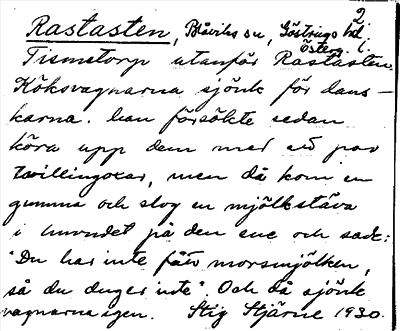 2
Rastasten, Blåviks sn, Göstrings hd.
Östergötl.
Tismetorp utanför Rastasten.
Köksvagnarna sjönk för dans-
karna. han försökte sedan
köra upp dem med ett par
tvillingoxar, men då kom en
gumma och slog en mjölkstäva
i huvudet på den ene och sade:
"Du har inte fått morsmjölken,
så du duger inte". Och då sjönk
vagnarna igen. Stig Stjärne 1930.